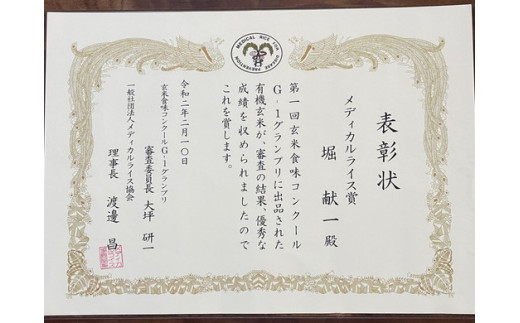 MEDICAL RICE FOR DISEASE PREVENTION
表彰状
メディカルライス賞
堀 献一 殿
第一回玄米食味コンクール
G-1グランプリに出品された
有機玄米が、審査の結果、優秀な
成績を収められましたので
これを賞します。
令和二年二月一〇日
玄米食味コンクールG-1グランプリ
審査委員長 大坪 研一
一般社団法人メディカルライス協会
理事長 渡邊 昌